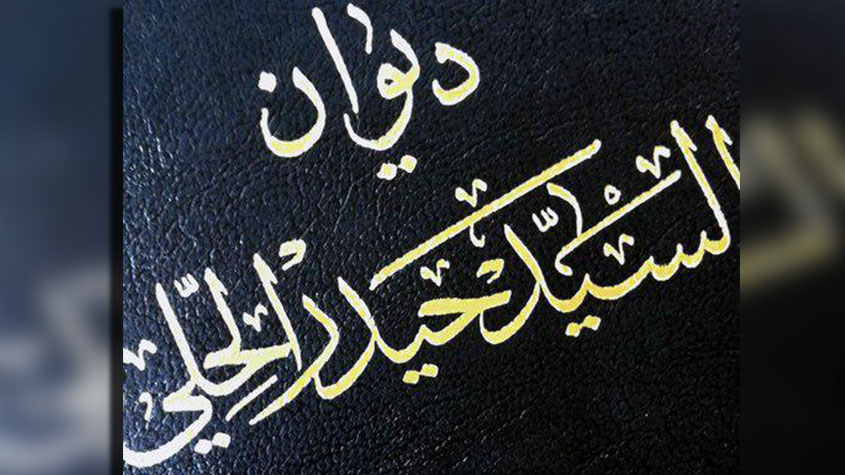 ديوان
السيّد حيدر الحلّي